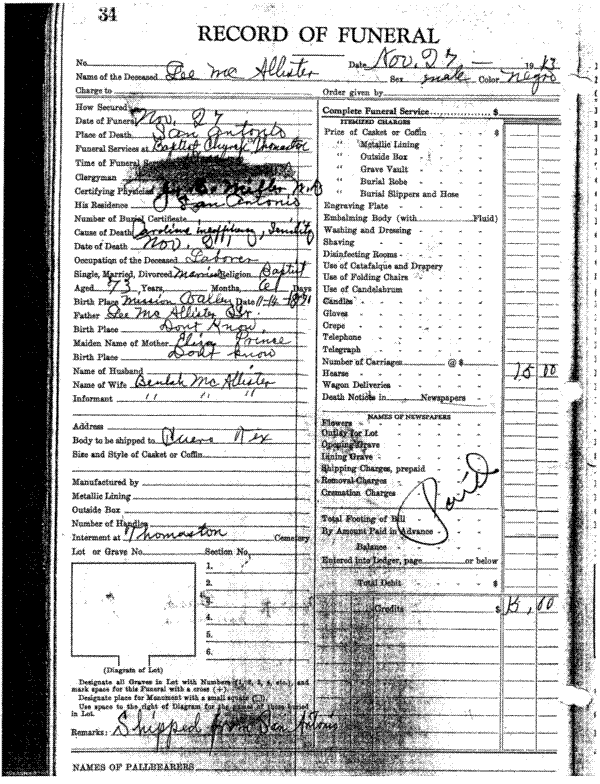 34
RECORD OF FUNERAL
No. Date Nov. 27 - 19
Name of the Deceased Lee Mc Allister Sex male Color Negro
Charge to
How Secured
Date of Funeral Nov. 27
Place of Death San Antonio
Funeral Services at Baptist Church Thomaston
Time of Funeral
Clergyman
Certifying Physician
His Residence San Antonio
Number of Burial Certificate
Cause of Death
Date of Death Nov.
Occupation of the Deceased Laborer
Single, Married, Divorced Married Religion Baptist
Aged 73 Years, Months, Days
Birth Place Mission Valley Date 11-14-
Father Lee Mc Allister Sr.
Birth Place Dont Know
Maiden Name of Mother Eliza Prince
Birth Place Dont know
Name of Husband
Name of Wife Beulah Mc Allister
Informant " " "
Address
Body to be shipped to Cuero Tex
Size and Style of Casket or Coffin
Manufactured by
Metallic Lining
Outside Box
Number of Handles
Interment at Thomaston Cemetery
Lot or Grave No. Section No.
1.
2.
3.
4.
5.
6.
(Diagram of Lot)
Designate all Graves in Lot with Numbers (1, 2, 3, 4, etc.), and
mark space for this Funeral with a cross (+).
Designate place for Monument with a small square
Use space to the right of Diagram for the names of those buried
in Lot.
Remarks: Shipped from San Antonio
NAMES OF PALLBEARERS
Order given by
Complete Funeral Service $
ITEMIZED CHARGES
Price of Casket or Coffin $
" Metallic Lining
" Outside Box
" Grave Vault
" Burial Robe
" Burial Slippers and Hose
Engraving Plate
Embalming Body (with Fluid)
Washing and Dressing
Shaving
Disinfecting Rooms
Use of Catafalque and Drapery
Use of Folding Chairs
Use of Candelabrum
Candles
Gloves
Crepe
Telephone
Telegraph
Number of Carriages @ $
Hearse 15 00
Wagon Deliveries
Death Notices in Newspapers
NAMES OF NEWSPAPERS
Flowers
Outlay for Lot
Opening Grave
Lining Grave
Shipping Charges, prepaid
Removal Charges
Cremation Charges
Paid
Total Footing of Bill
By Amount Paid in Advance
Balance
Entered into Ledger, page or below
Total Debit $
Credits $ 15,00